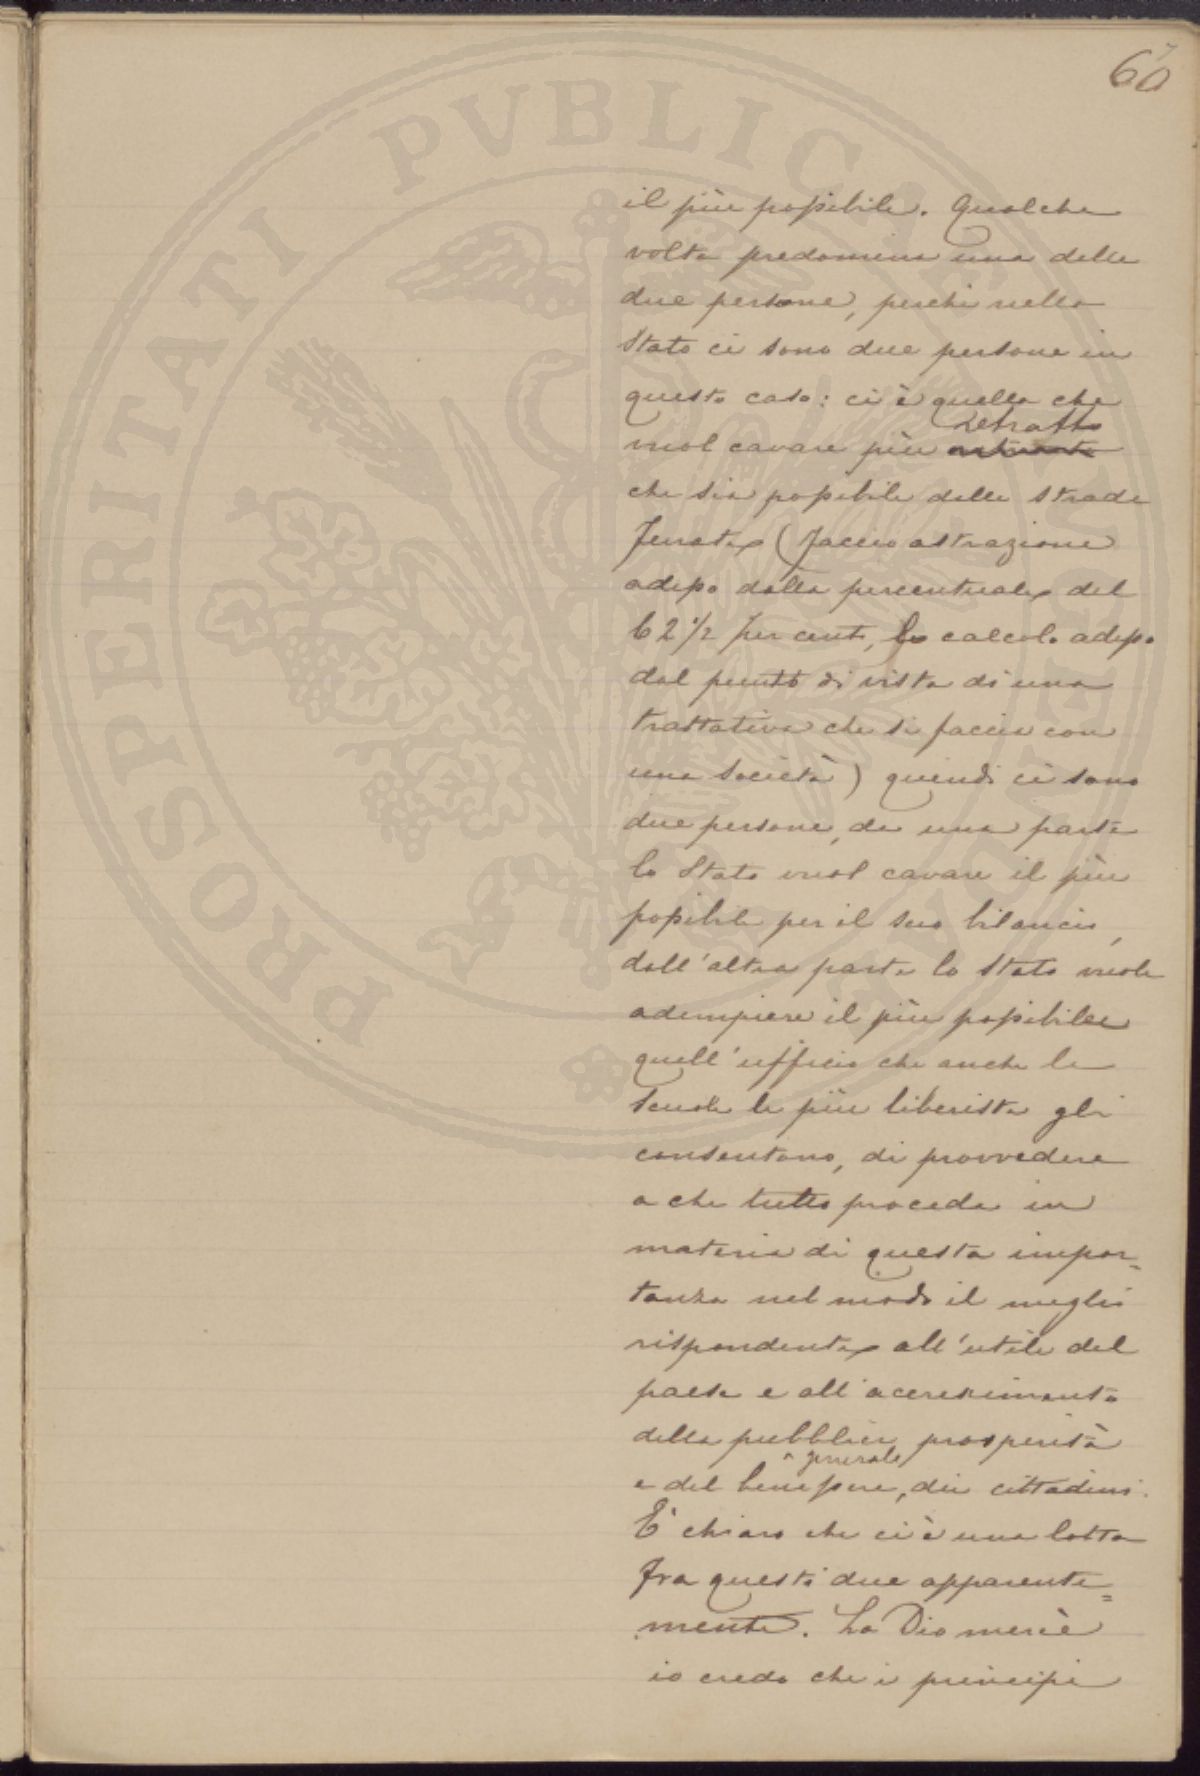 60
il più possibile. Qualche
volta predomina una delle
due persone, perchè nello
Stato ci sono due persone in
questo caso: ci è quella che
detratto
vuol cavare più
che sia possibile delle strade
ferrate (faccio astrazione
adesso dalla percentuale del
62 1/2 per cento, lo calcolo adesso
dal punto di vista di una
trattativa che si faccia con
una Società) quindi ci sono
due persone, da una parte
lo Stato vuol cavare il più
possibile per il suo bilancio,
dall'altra parte lo Stato vuole
adempiere il più possibile
quell'ufficio che anche le
scuole le più liberiste gli
consentono, di provvedere
a che tutto proceda in
materia di questa impor=
tanza nel modo il meglio
rispondente all'utile del
paese e all'accrescimento
della pubblica prosperità
generale
e del benessere, dei cittadini.
E' chiaro che ci è una lotta
fra questi due apparente=
mente. La Dio mercè
io credo che i principi
PROSPERITATI PVBLICAE